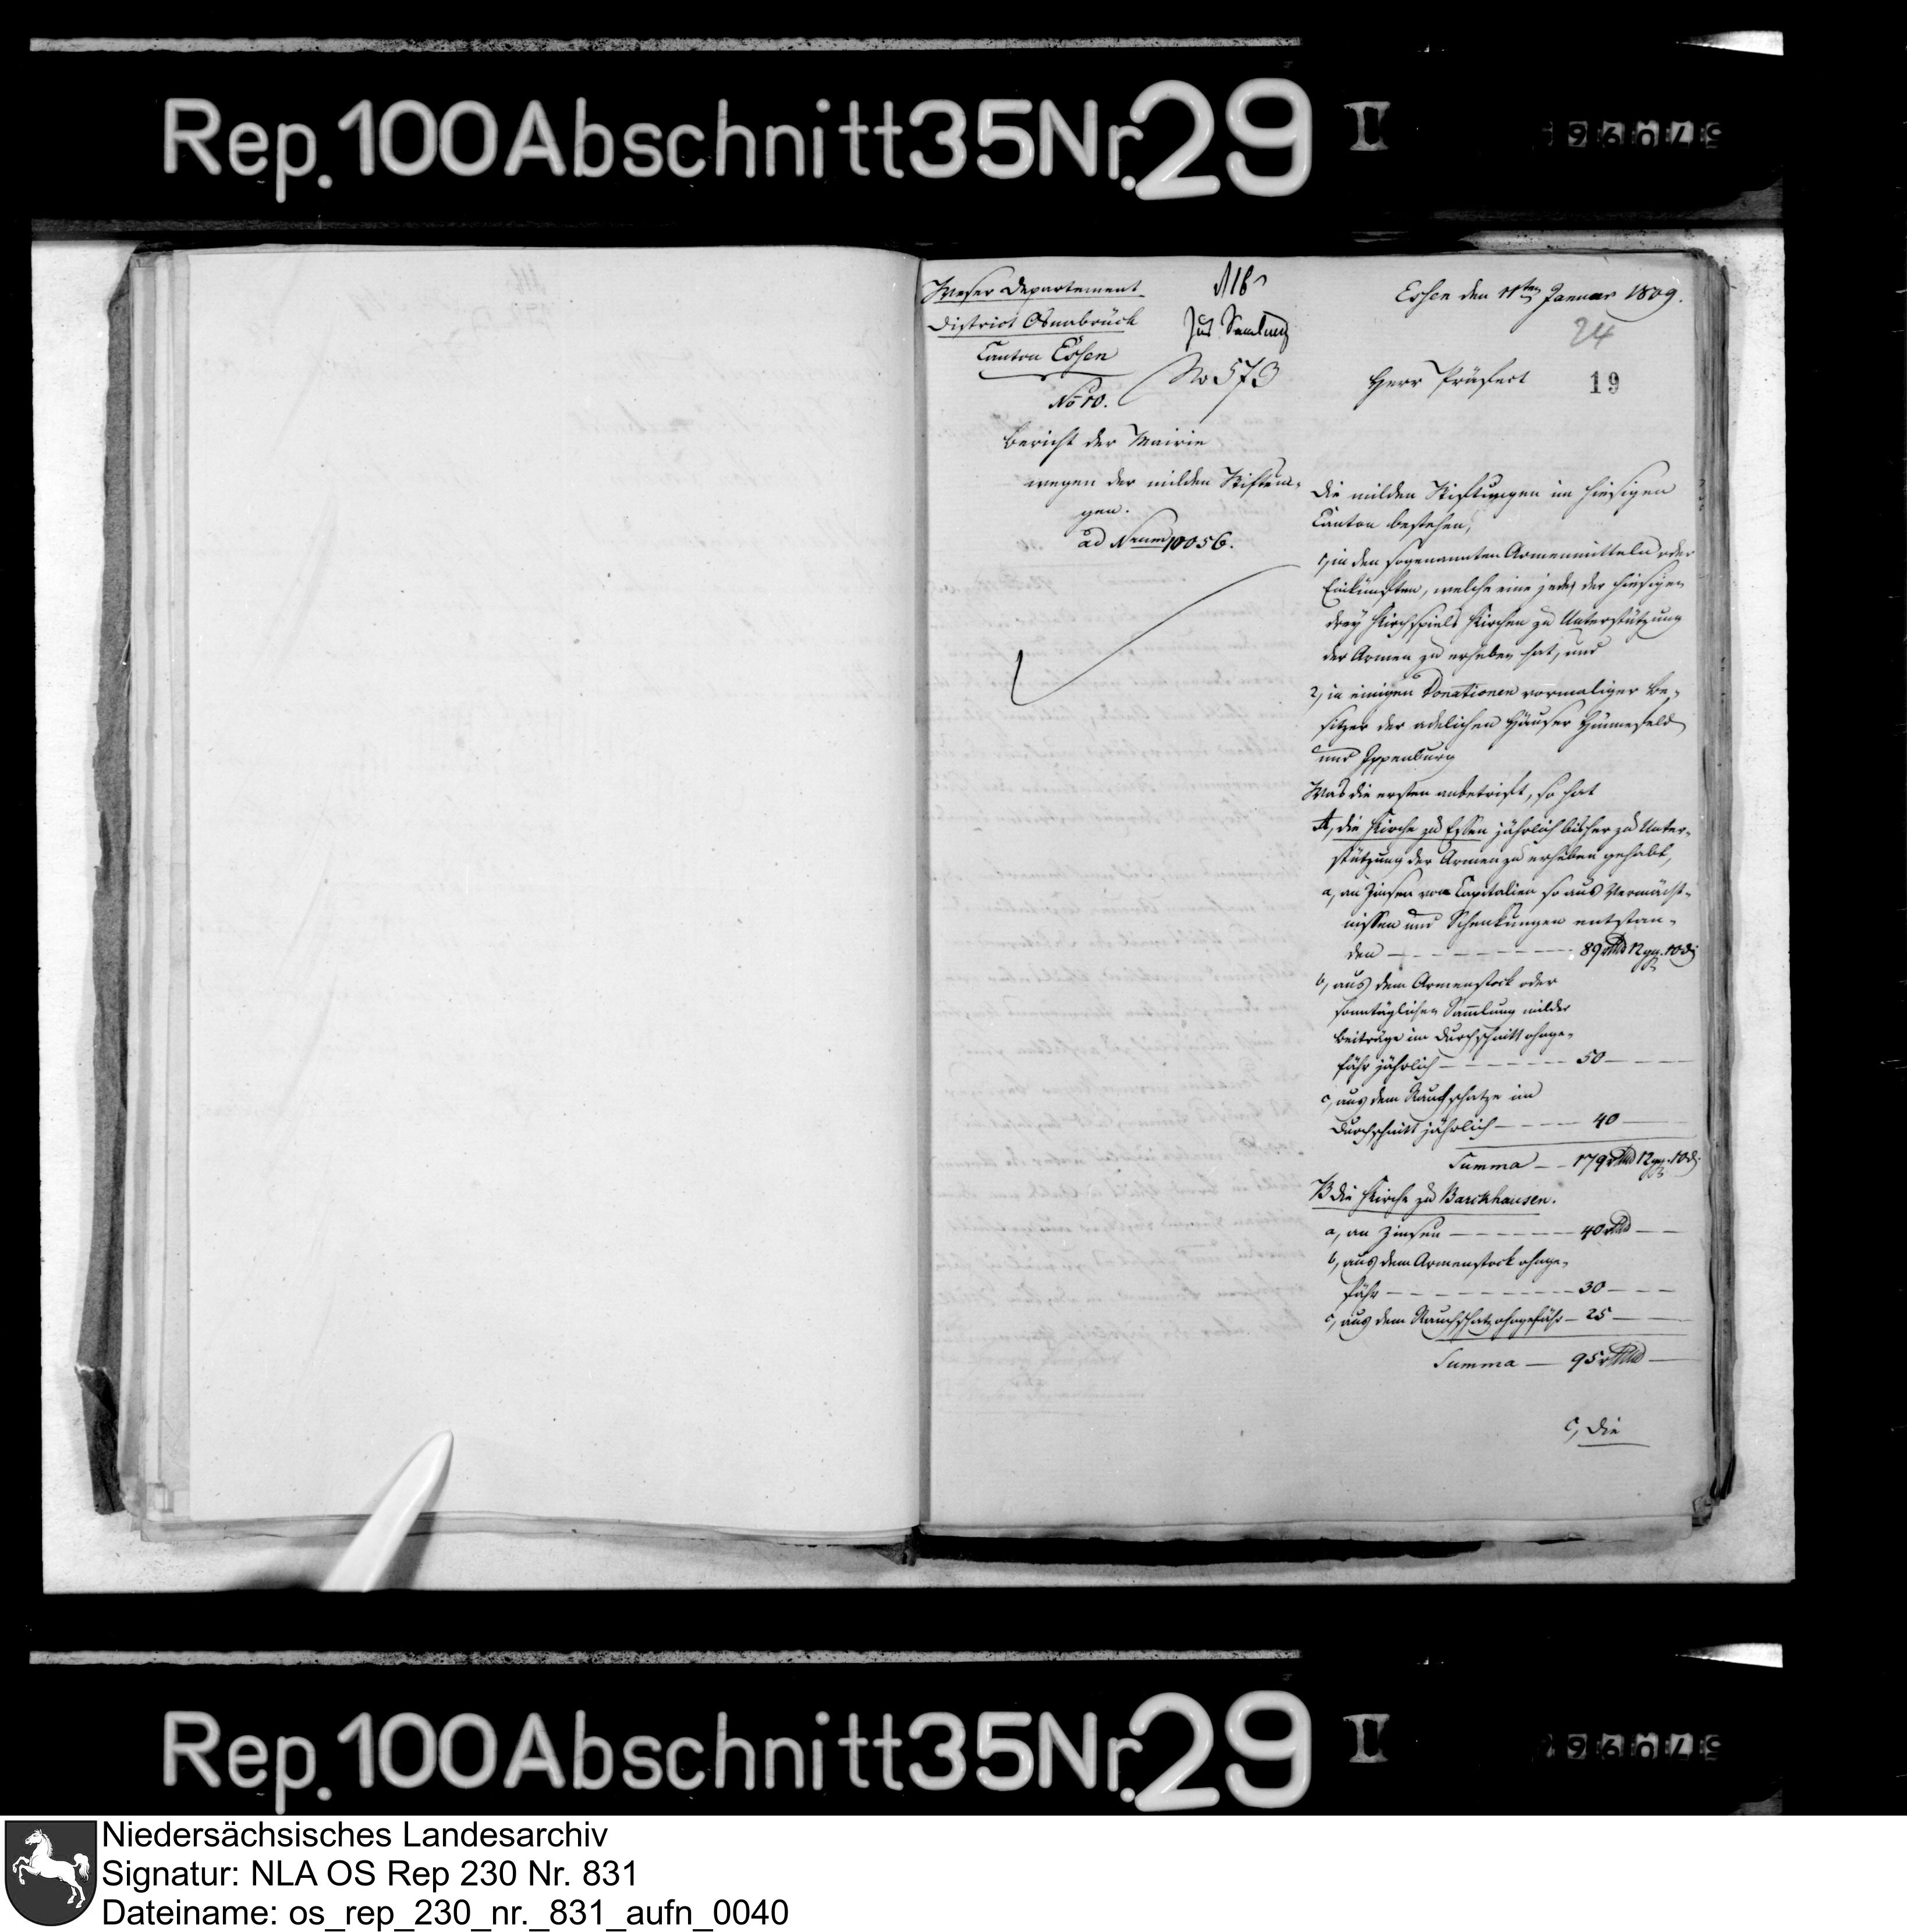 Rep. 100 Abschnitt 35 Nr. 29 II
Weser Departement
District Osnabrück
Canton Essen
No 10.
Bericht der Mairie
wegen der milden Stiftun-
gen.
ad Num 10056.
Zur Samlung
No 573
Essen den 11ten Januar 1809.
24
Herr Präfect
19
Die milden Stiftungen im hiesigen
Canton bestehen,
1, in den sogenannten Armenmitteln oder
Einkünften, welche eine jede der hiesigen
drey Kirchspiels Kirchen zu Unterstützung
der Armen zu erheben hat, und
2, in einigen Donationen vormaliger Be-
sitzer der adelichen Häuser Hünnefeld
und Ippenburg
Was die ersten anbetrift, so hat
A, die Kirche zu Essen jährlich bisher zu Unter-
stützung der Armen zu erheben gehabt,
a, an Zinsen von Capitalien so aus Vermächt-
nissen und Schenkungen entstan-
den - - - 89 rthlr 12 ggr. 10 d
b, aus dem Armenstock oder
sonntäglichen Samlung milder
Beiträge im Durchschnitt ohnge-
fähr jährlich - - - 50 - - -
c, aus dem Rauchschatze im
Durchschnitt jährlich - - - 40 —
Summa - - 179 rthlr 12 ggr. 10 d.
B die Kirche zu Barckhausen.
a, an Zinsen - - - 40 rthlr —
b, aus dem Armenstock ohnge-
fähr - - - 30 - - -
c, aus dem Rauchschatz ohngefähr - 25 —
Summa — 95 rthlr —
C, die
Rep. 100 Abschnitt 35 Nr. 29 II
Niedersächsisches Landesarchiv
Signatur: NLA OS Rep 230 Nr. 831
Dateiname: os_rep_230_nr._831_aufn_0040